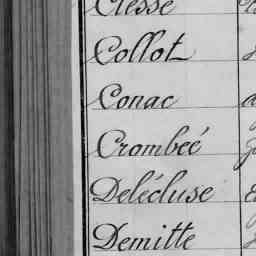 Clesse
Collot
Conac
Crombeé
Delécluse
Demitte